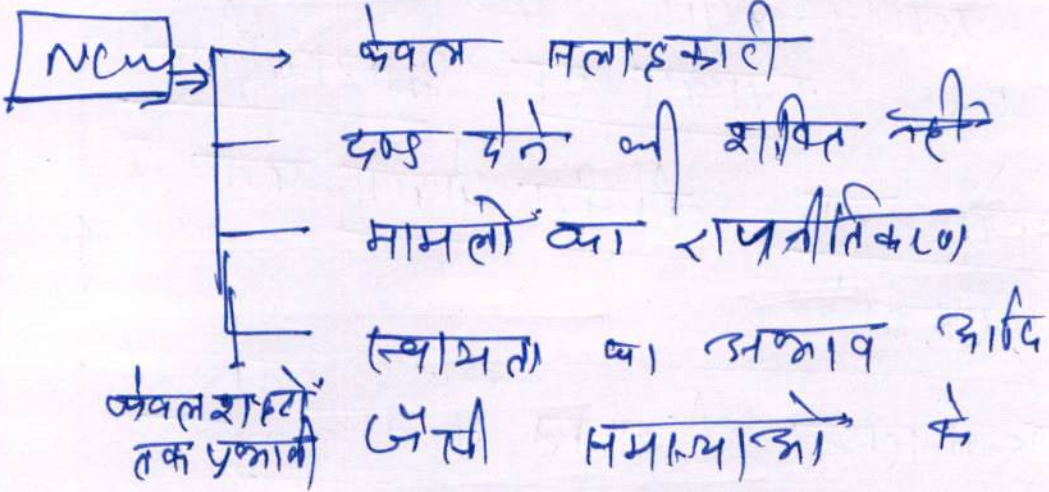 NCW → केवल सलाहकारी
दण्ड देने की शक्ति नहीं
मामलों का राजनीतिकरण
स्वायत्ता का अभाव आदि
केवल शहरों
तक प्रभावी
जैसी समास्याओं के